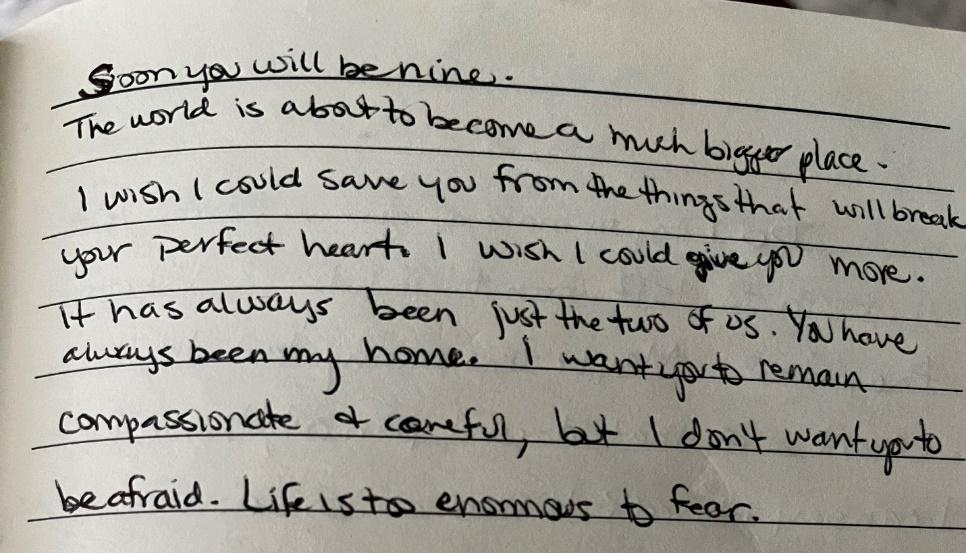 Soon you will be nine.
The world is about to become a much bigger place.
I wish I could save you from the things that will break
your perfect heart. I wish I could give you more.
It has always been just the two of us. You have
always been my home. I want you to remain
compassionate & careful, but I don't want you to
be afraid. Life is too enormous to fear.